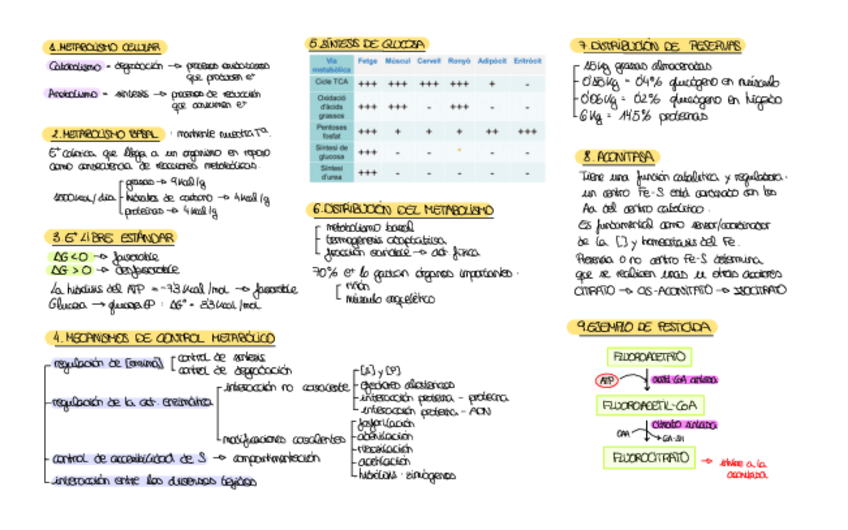 1. METABOLISMO CELULAR
Catabolismo = degradación → procesos oxidativos
que producen e⁻
Anabolismo = síntesis → procesos de reducción
que consumen e⁻
2. METABOLISMO BASAL · mantiene nuestra Tª.
Eª calórica que llega a un organismo en reposo
como consecuencia de reacciones metabólicas.
grasas → 9 kcal/g
hidratos de carbono → 4 kcal/g
proteínas → 4 kcal/g
3. Eª LIBRE ESTÁNDAR
ΔG < 0 → favorable
ΔG > 0 → desfavorable
La hidrólisis del ATP = -7'3 kcal/mol → favorable
Glucosa → glucosa 6P : ΔG° = 3'3 kcal/mol
4. MECANISMOS DE CONTROL METABÓLICO
regulación de [enzima]
control de síntesis
control de degradación
regulación de la act. enzimática
interacción no covalente
[S] y [P]
efectores alostéricos
interacción proteína - proteína
interacción proteína - ADN
modificaciones covalentes
fosforilación
adenilación
metilación
acetilación
hidrólisis · zimógenos
control de accesibilidad de S → compartimentación
interacción entre los diversos tejidos
5. SÍNTESIS DE GLUCOSA
Via metabòlica Fetge Múscul Cervell Ronyó Adipòcit Eritròcit
Cicle TCA +++ +++ +++ +++ + -
Oxidació d'àcids grassos +++ +++ - +++ - -
Pentoses fosfat +++ + + + ++ +++
Síntesi de glucosa +++ - - * - -
Síntesi d'urea +++ - - - - -
6. DISTRIBUCIÓN DEL METABOLISMO
metabolismo basal
termogénesis adaptativa
fracción variable → act. física
70% eª lo gastan órganos importantes ·
riñón
músculo esquelético
7. DISTRIBUCIÓN DE RESERVAS
15 kg grasas almacenadas
= 0'4% glucógeno en músculo
= 0'2% glucógeno en hígado
6 kg = 14'5% proteínas
8. ACONITASA
Tiene una función catalítica y reguladora.
un centro Fe-S está coordinado con los
Aa del centro catalítico.
Es fundamental como sensor/coordinador
de la [ ] y homeostasis del Fe.
Presencia o no centro Fe-S determina
que se realicen unas u otras acciones
CITRATO → CIS-ACONITATO → ISOCITRATO
9. EJEMPLO DE PESTICIDA
FLUOROACETATO
ATP acetil CoA sintasa
FLUOROACETIL-CoA
citrato sintasa
OAA CoA-SH
FLUOROCITRATO → inhibe a la
aconitasa